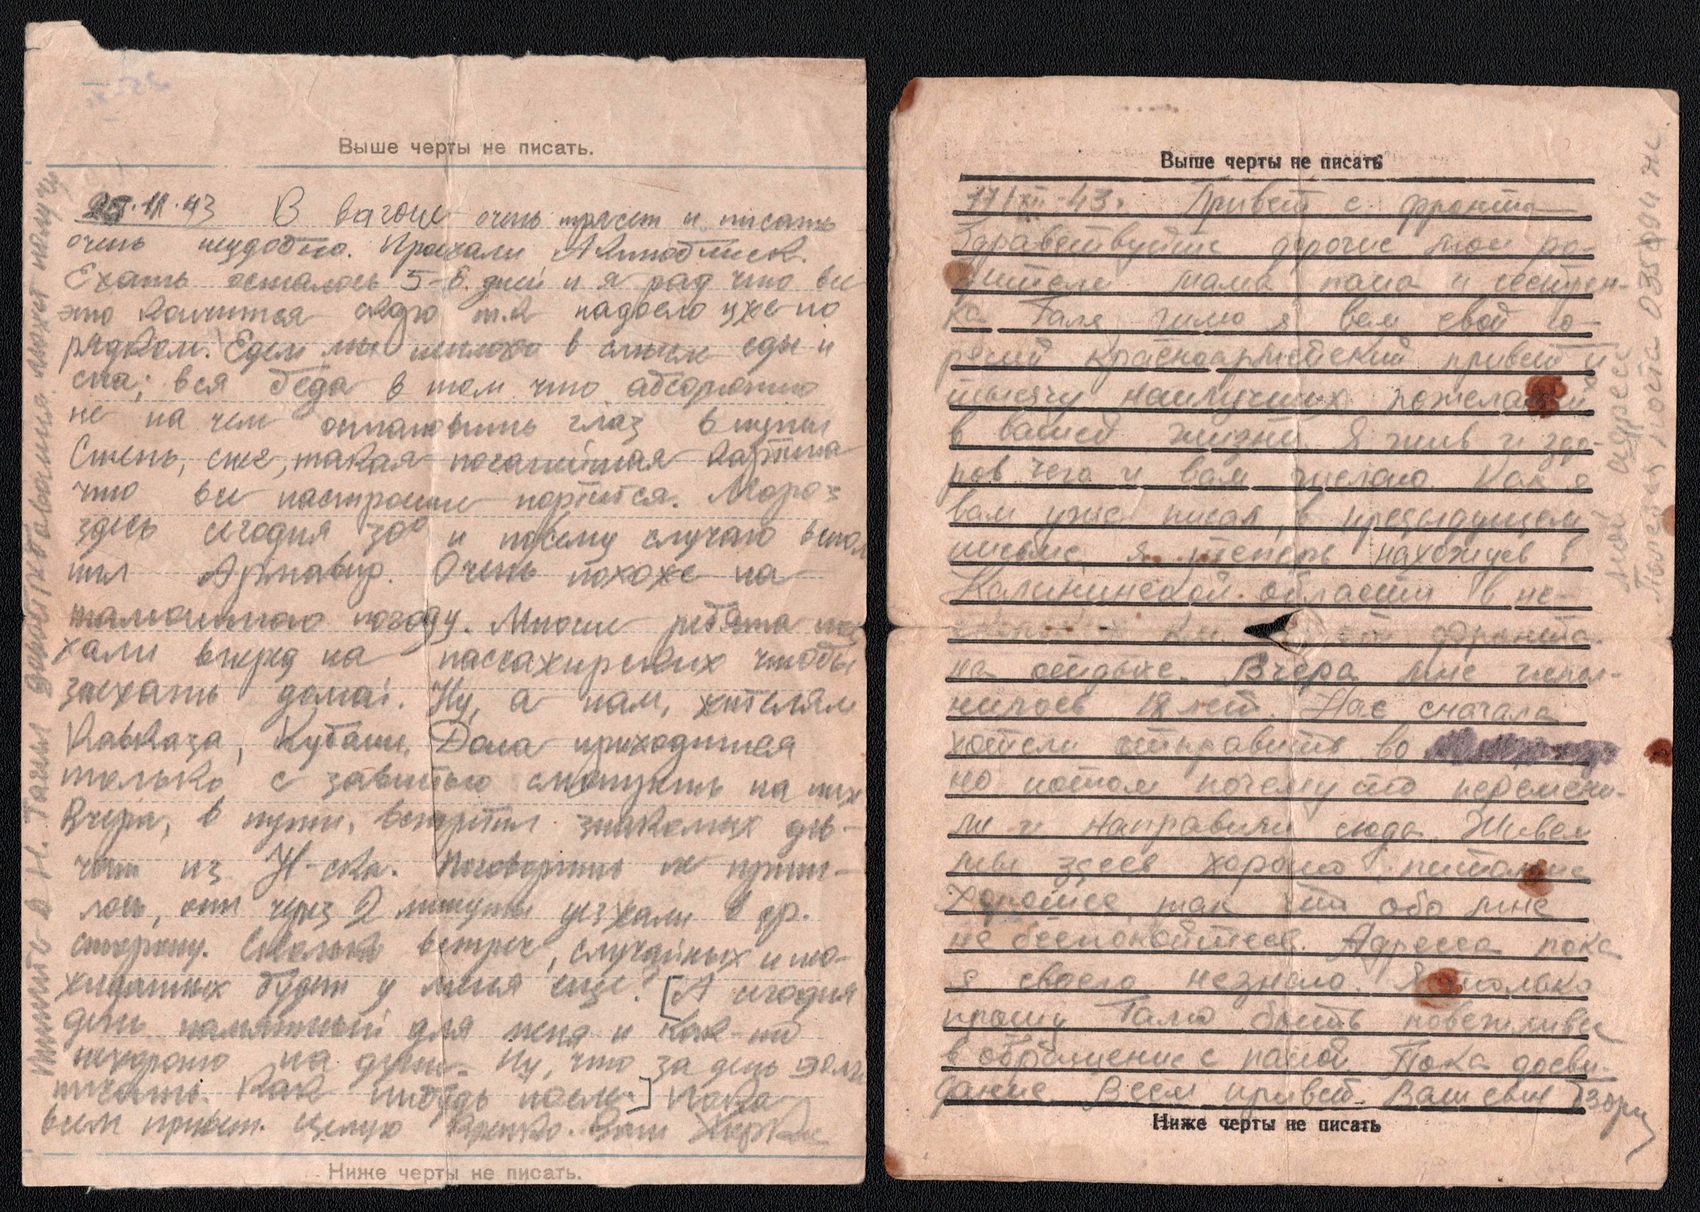 Выше черты не писать.
25.11.43 В вагоне очень трясет и писать
очень неудобно. Проехали Актюбинск.
Ехать осталось 5-6 дней и я рад что все
это кончится скоро т.к надоело уже по
рядком. Едем мы неплохо в смысле еды и
сна; вся беда в том что абсолютно
не на чем остановить глаз в пути
Степь, снег, такая
что все настроение портится. Мороз
здесь сегодня 30° и по сему случаю вспом
нил Армавир. Очень похоже на
погоду. Многие ребята пое
хали вперед на пассажирских чтобы
заехать домой. Ну, а нам, жителям
Кавказа, Кубани, Дона приходится
только с завистью смотреть на них
Вчера, в пути, встретил знакомых дев-
чат из Н-ска. Поговорить не приш-
лось, они через 2 минуты уезжали в др.
сторону. Сколько встреч, случайных и нео-
жиданных будет у меня еще? [А сегодня
день памятный для меня и как-то
нехорошо на душе. Ну, что за день
писать. Как нибудь после.] Пока
всем привет. Целую крепко. Ваш
Пишите в Н. Тагил до востребования может получу
Ниже черты не писать.
Выше черты не писать
17/XII-43г. Привет с фронта
Здравствуйте дорогие мои ро-
дители мама папа и сестрен-
ка Галя шлю я вам свой го-
рячий красноармейский привет и
тысячу наилучших пожеланий
в вашей жизни. Я жив и здо-
ров чего и вам желаю. Как я
вам уже писал, в предыдущем
письме, я теперь нахожусь в
Калининской области в не-
км. от фронта
на отдыхе. Вчера мне испол-
нилось 18 лет. Нас сначала
хотели отправить во
но потом почему то перемени-
ли и направили сюда. Живем
мы здесь хорошо питание
хорошее, так что обо мне
не беспокойтесь. Адресса пока
я своего незнаю. Я только
прошу Галю быть повежливей
в обращение с папой. Пока досви-
дание. Всем привет. Ваш сын
Мой адресс
Полевая почта
Ниже черты не писать